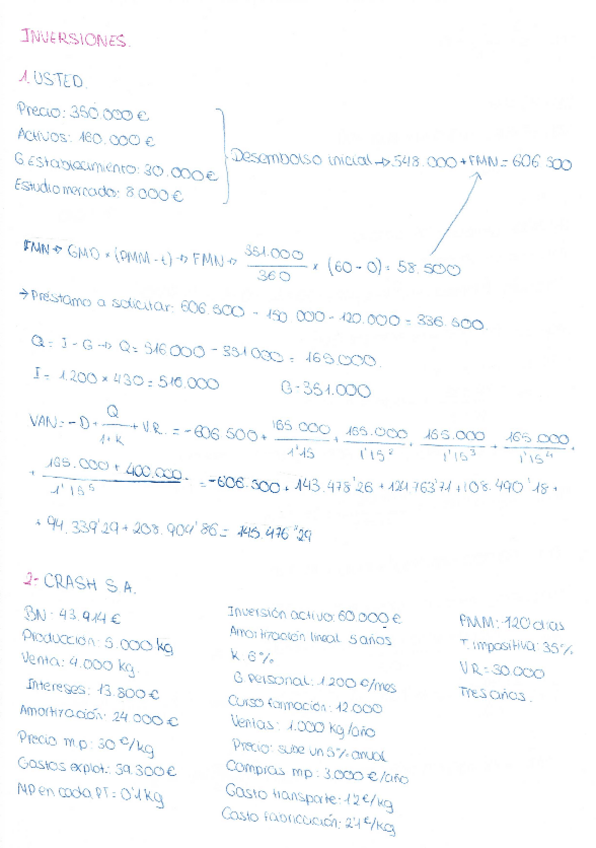 INVERSIONES.
1. USTED.
Precio: 350.000 €
Activos: 160.000 €
G Establecimiento: 30.000 €
Estudio mercado: 8.000 €
Desembolso inicial → 548.000 + FMN = 606 500
FMN → GMD × (PMM - t) → FMN → 351.000 / 360 × (60 - 0) = 58.500
→ Préstamo a solicitar: 606.500 - 150 000 - 120.000 = 336.500
Q = I - G → Q = 516000 - 351000 = 165000.
I = 1.200 × 430 = 516.000 G = 351.000
VAN = - D + Q / 1+K + V.R. = - 606 500 + 165 000 / 1'15 + 165.000 / 1'15² + 165.000 / 1'15³ + 165 000 / 1'15⁴ +
+ 165.000 + 400.000 / 1'15⁵ = -606.500 + 143.478'26 + 124763'71 + 108.490'18 +
+ 94.339'29 + 208.904'86 = 145.476'29
2- CRASH S.A.
BN = 43.914 €
Producción: 5.000 kg
Venta: 4.000 kg.
Intereses: 13.800 €
Amortización: 24 000 €
Precio mp: 30 €/kg
Gastos explot: 39.300 €
MP en cada PT = 0'1 kg
Inversión activo: 60.000 €
Amortización lineal 5 años
K 6%
G personal: 1200 €/mes
Curso formación: 12.000
Ventas: 1.000 kg/año
Precio: sube un 5% anual
Compras mp: 3.000 €/año
Gasto transporte: 12 €/kg
Costo fabricación: 21 €/kg
PMM: 120 días
T. impositiva: 35%
VR = 30.000
Tres años.